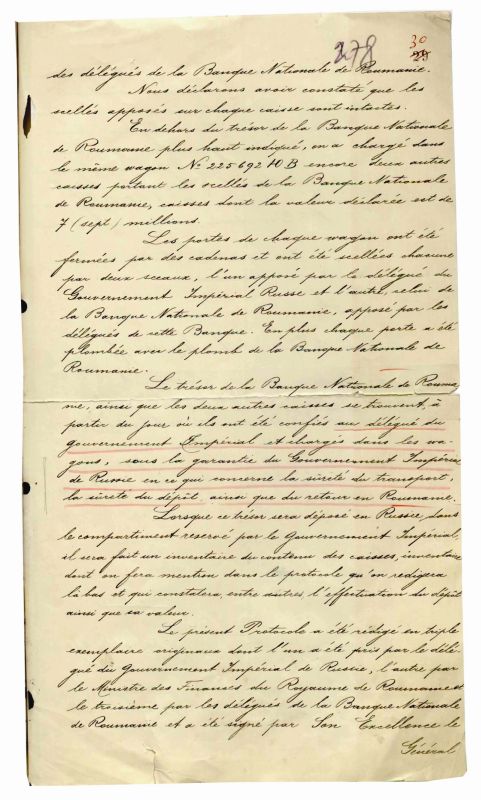 278
30
29
des délégués de la Banque Nationale de Roumanie.
Nous déclarons avoir constaté que les
scellés apposés sur chaque caisse sont intactes.
En dehors du trésor de la Banque Nationale
de Roumanie plus haut indiqué, on a chargé dans
le même wagon No 225692 10 B encore deux autres
caisses portant les scellés de la Banque Nationale
de Roumanie, caisses dont la valeur déclarée est de
7 (sept) millions.
Les portes de chaque wagon ont été
fermées par des cadenas et ont été scellées chacune
par deux sceaux, l'un apposé par le délégué du
Gouvernement Impérial Russe et l'autre, celui de
la Banque Nationale de Roumanie, apposé par les
délégués de cette Banque. En plus chaque porte a été
plombée avec le plomb de la Banque Nationale de
Roumanie.
Le trésor de la Banque Nationale de Rouma
nie, ainsi que les deux autres caisses se trouvent, à
partir du jour où ils ont été confiés au délégué du
gouvernement Impérial et chargés dans les wa-
gons, sous la garantie du Gouvernement Impérial
de Russie en ce qui concerne la sûreté du transport,
la sûreté du dépôt ainsi que du retour en Roumanie.
Lorsque ce trésor sera déposé en Russie, dans
le compartiment reservé par le Gouvernement Impérial,
il sera fait un inventaire du contenu des caisses, inventaire
dont on fera mention dans le protocole qu'on redigera
là bas et qui constatera, entre autres, l'effectuation du dépôt
ainsi que sa valeur.
Le présent Protocole a été rédigé en triple
exemplaire originaux dont l'un a été pris par le délé
gué du Gouvernement Impérial de Russie, l'autre par
le Ministre des Finances du Royaume de Roumanie et
le troisième par les délégués de la Banque Nationale
de Roumanie et a été signé par Son Excellence le
Général